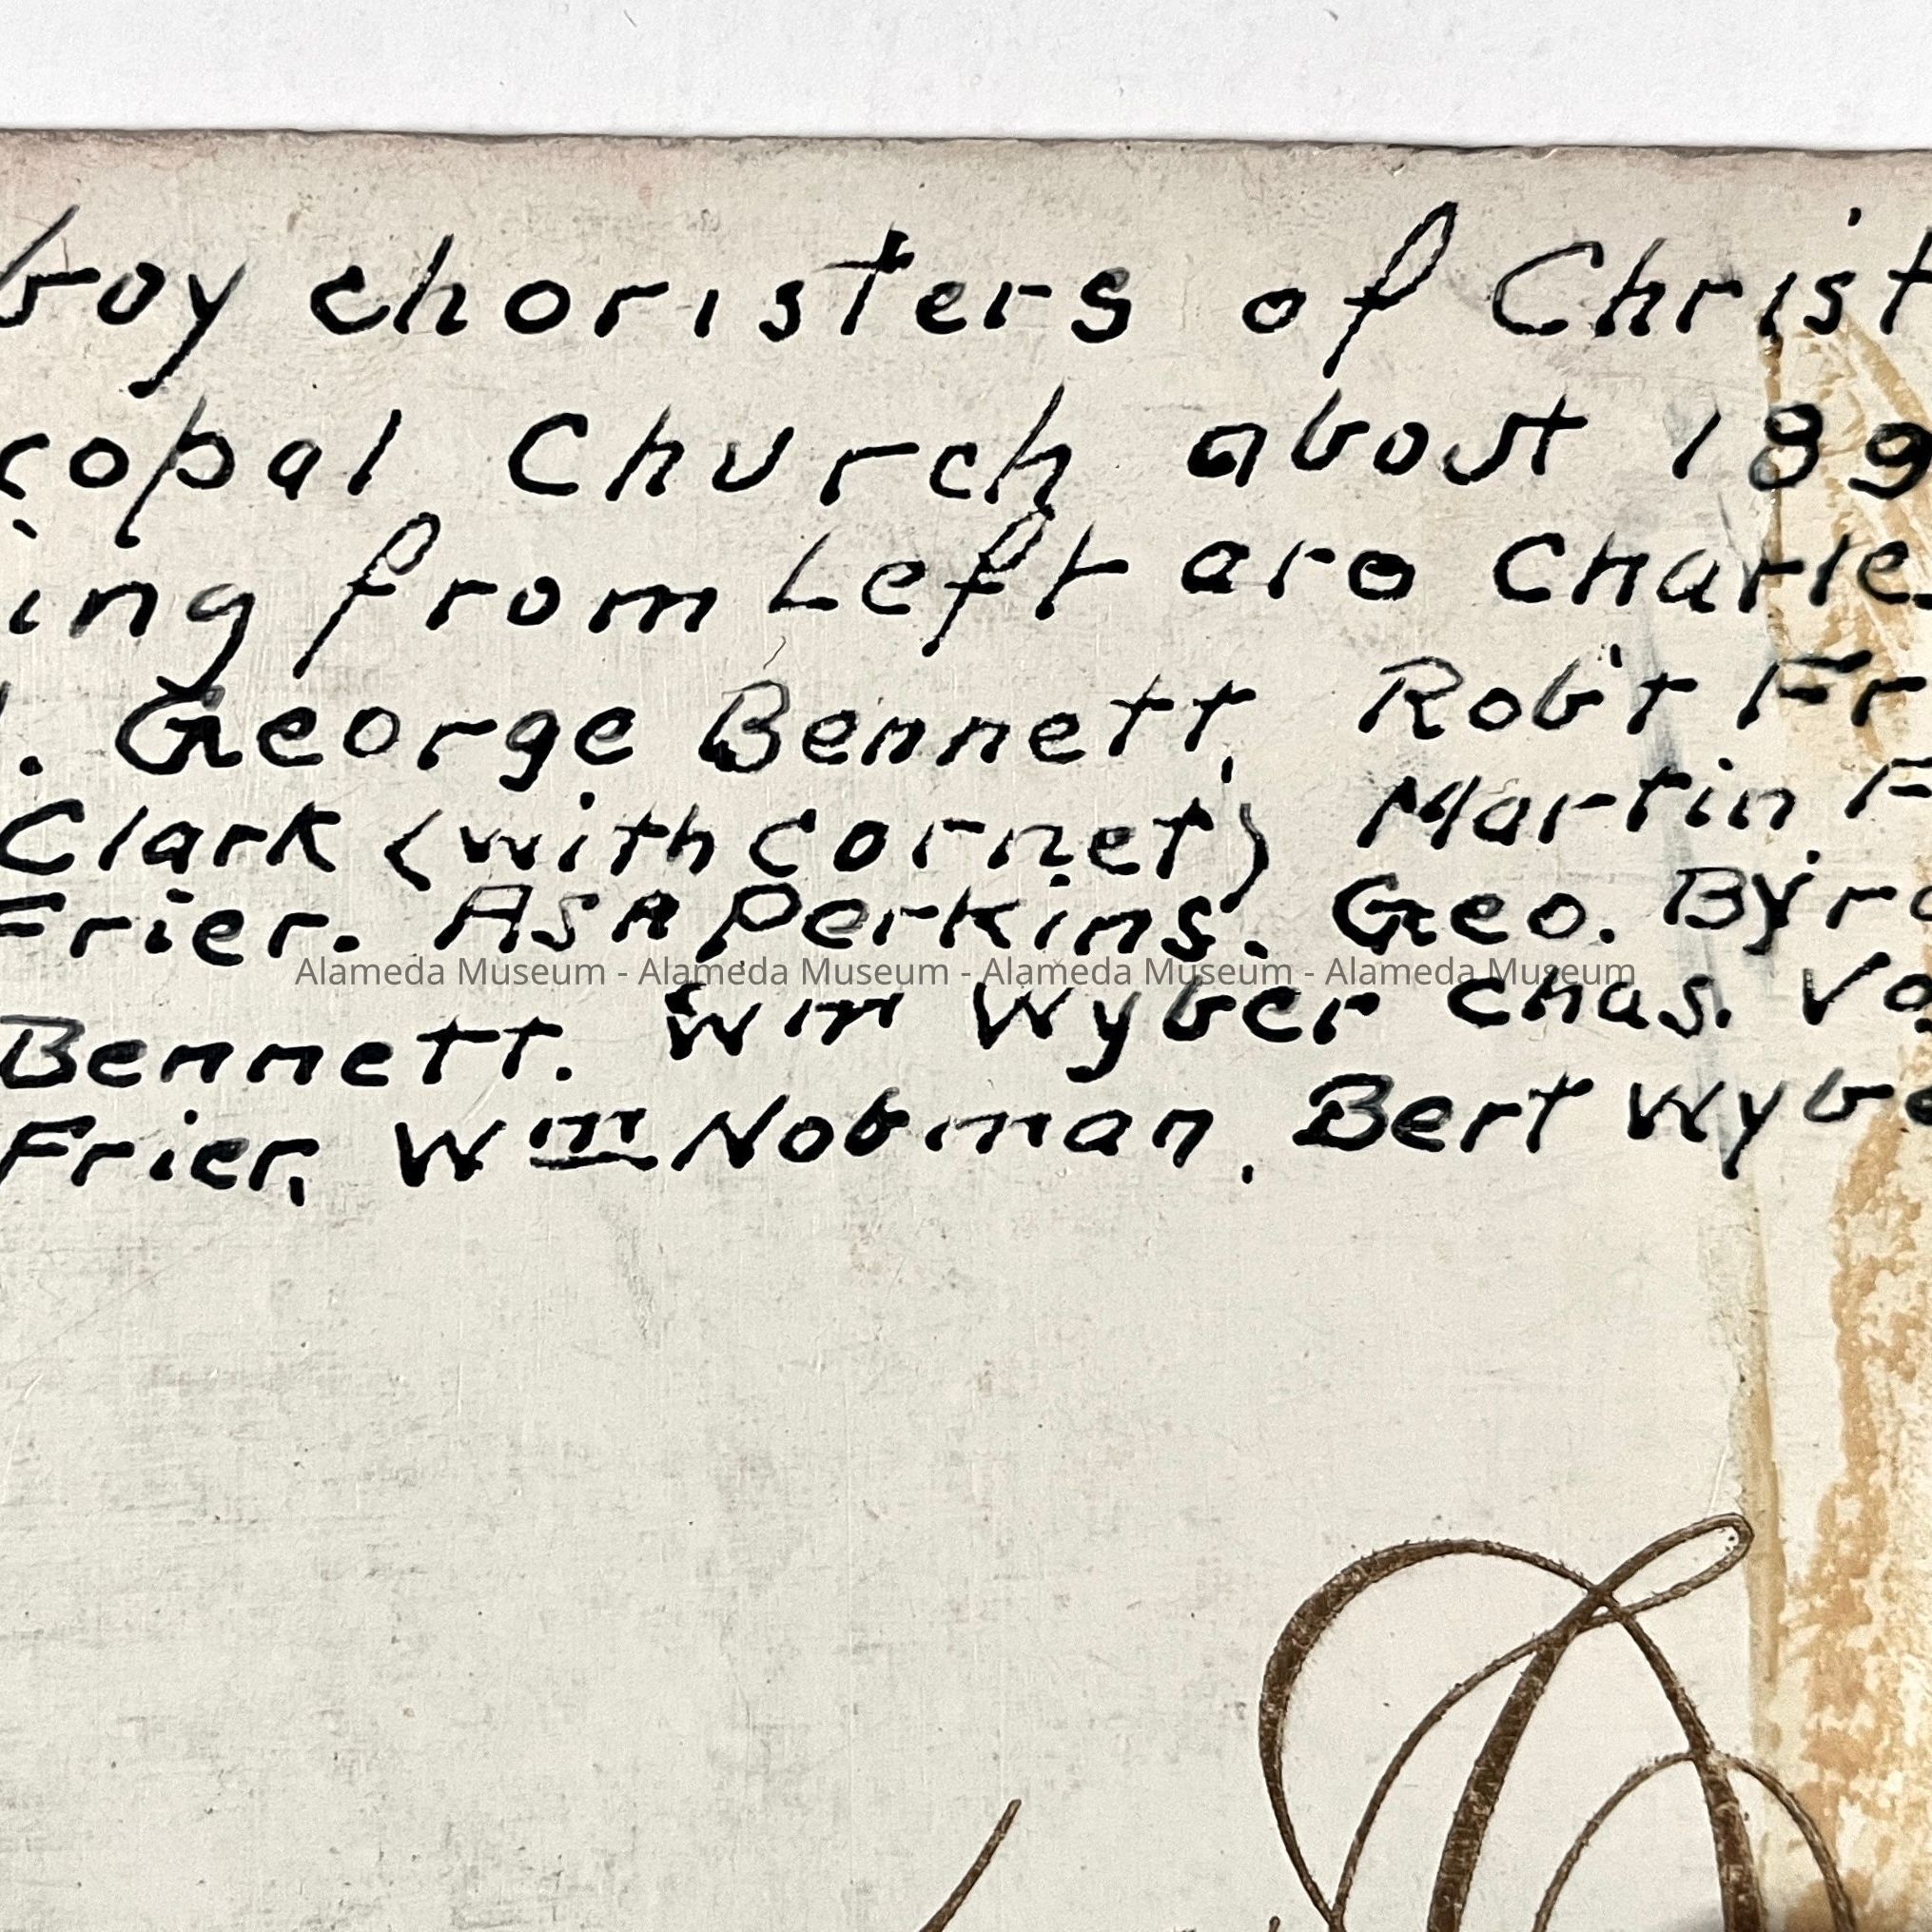 boy choristers of Christ
copal Church about 189
ing from Left are Charles
. George Bennett, Rob't Fr
Clark (with cornet) Martin F
Frier. Asa Perkins. Geo. Byrd
Alameda Museum - Alameda Museum - Alameda Museum - Alameda Museum
Bennett. Wm Wyber Chas. Vo
Frier, Wm Nobman, Bert Wybe